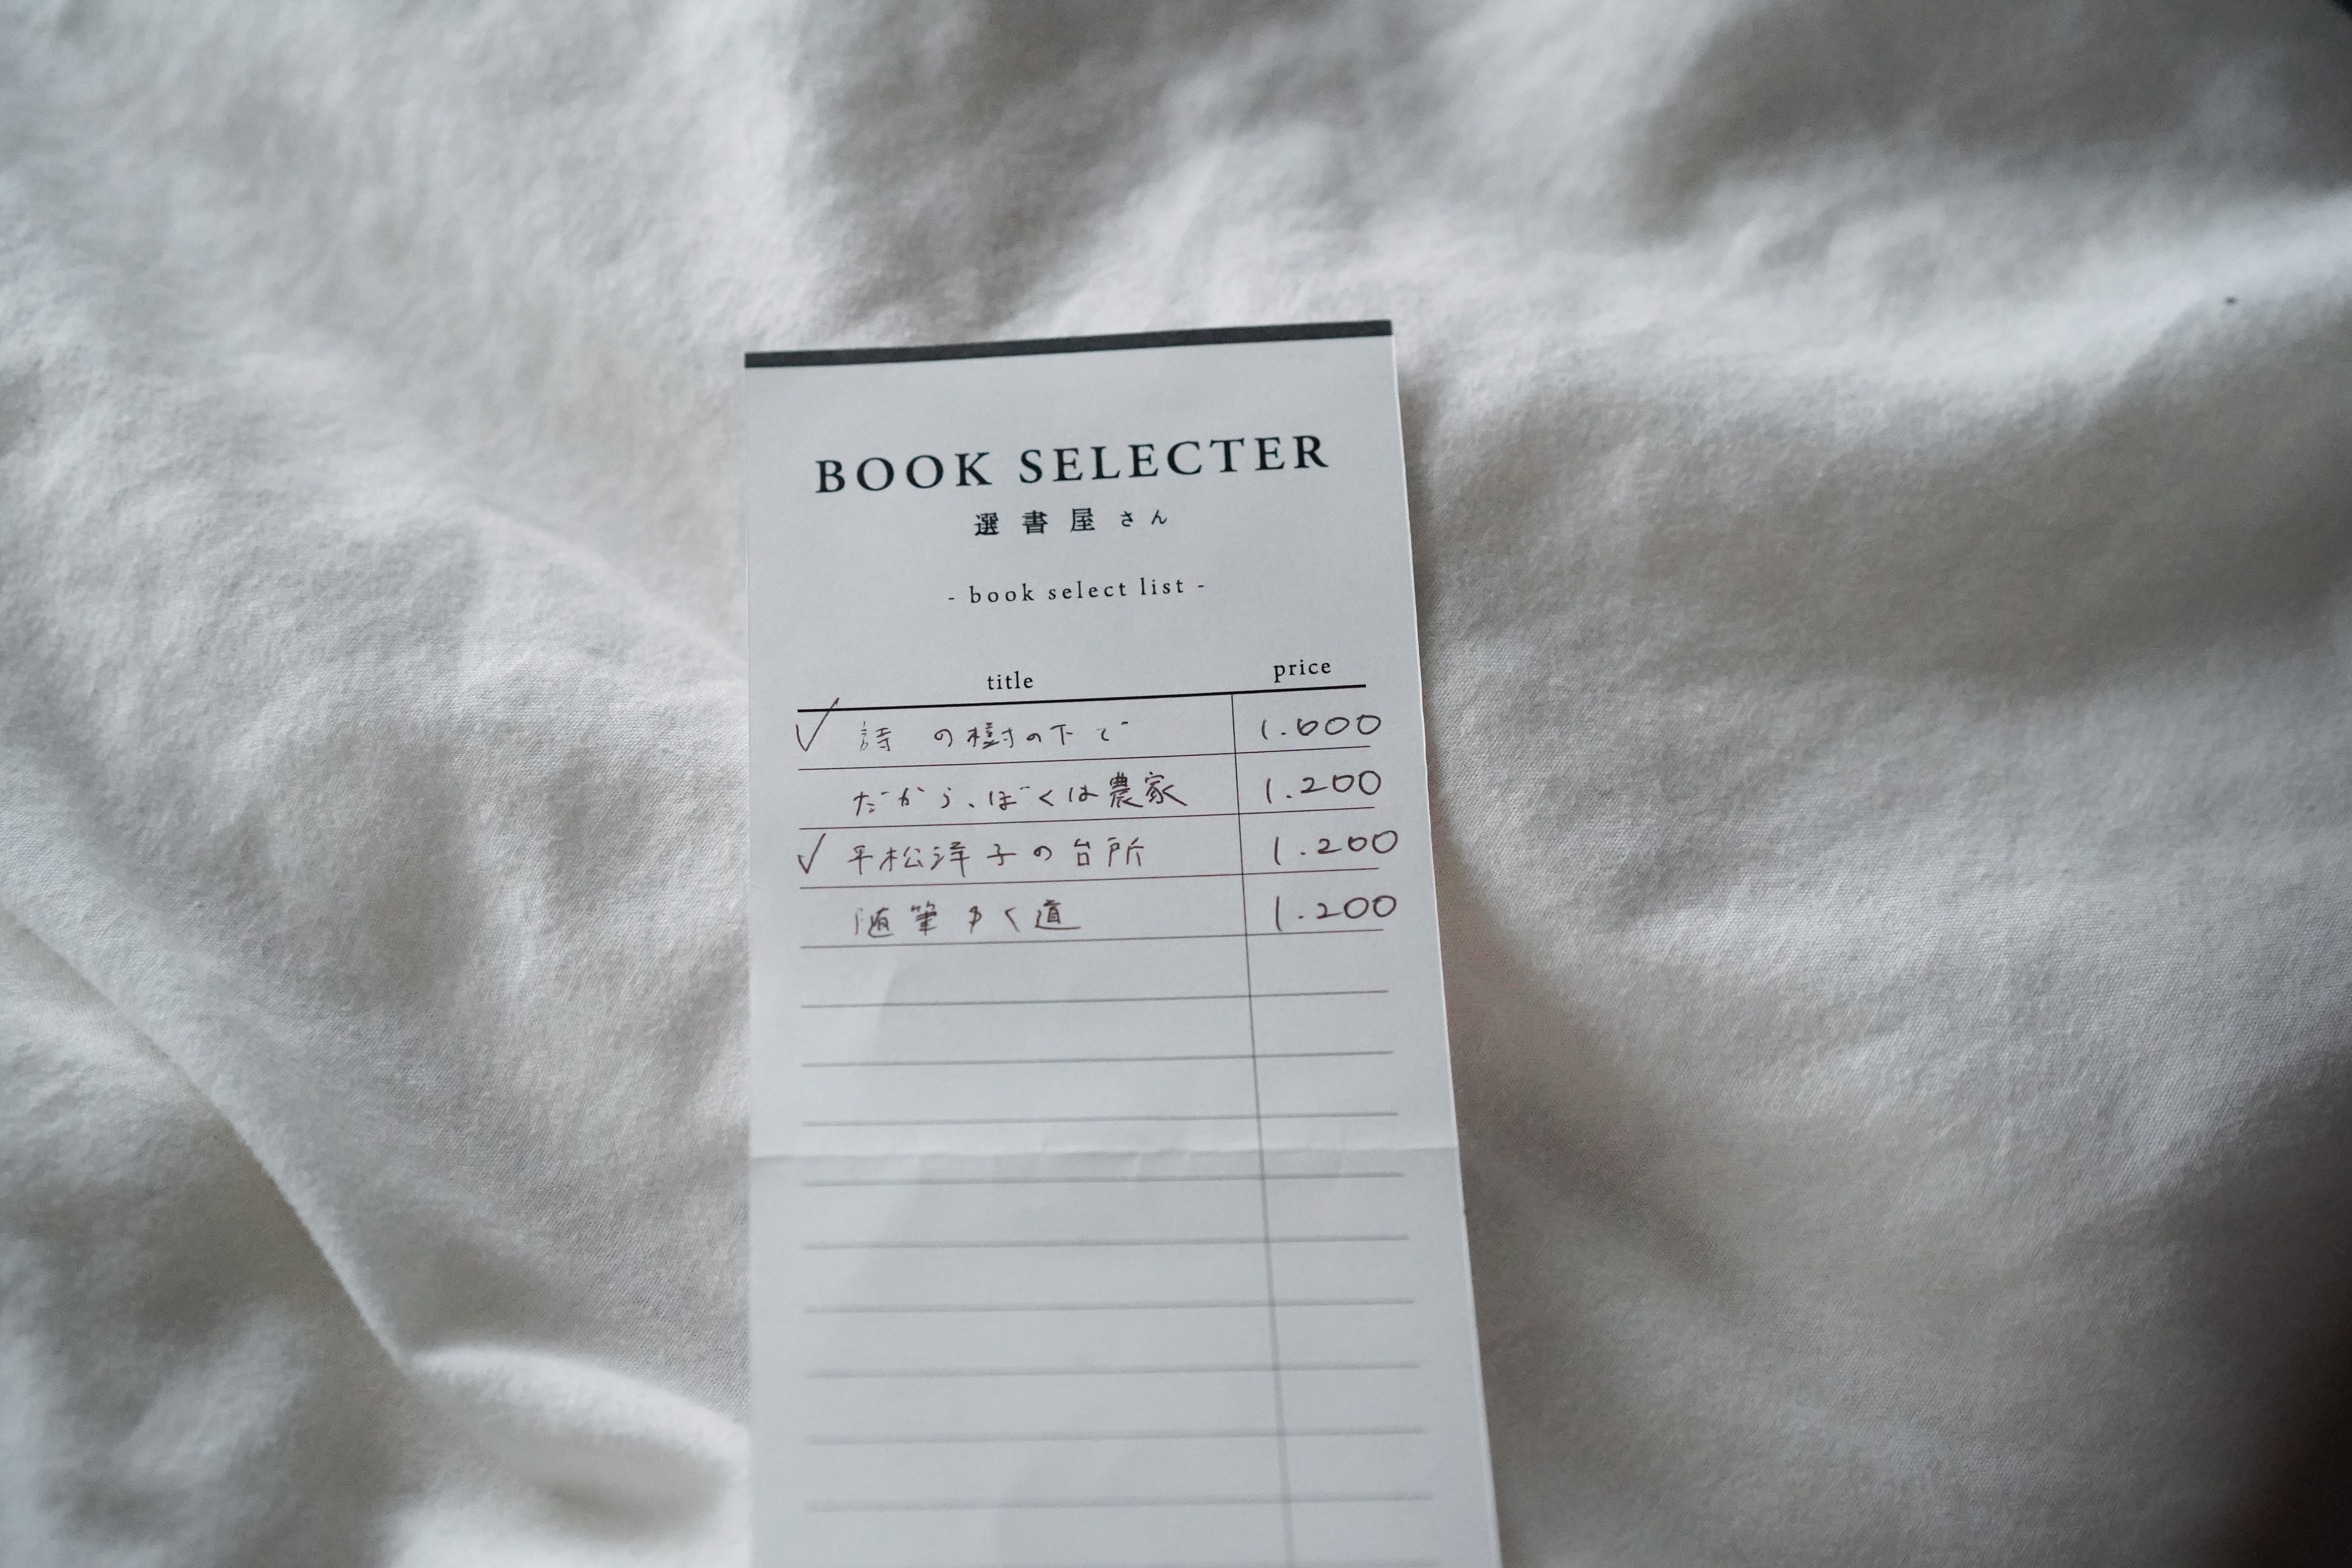 BOOK SELECTER
選書屋さん
- book select list -
title price
✓ 詩の樹の下で 1.600
だから、ぼくは農家 1.200
✓ 平松洋子の台所 1.200
随筆ゆく道 1.200